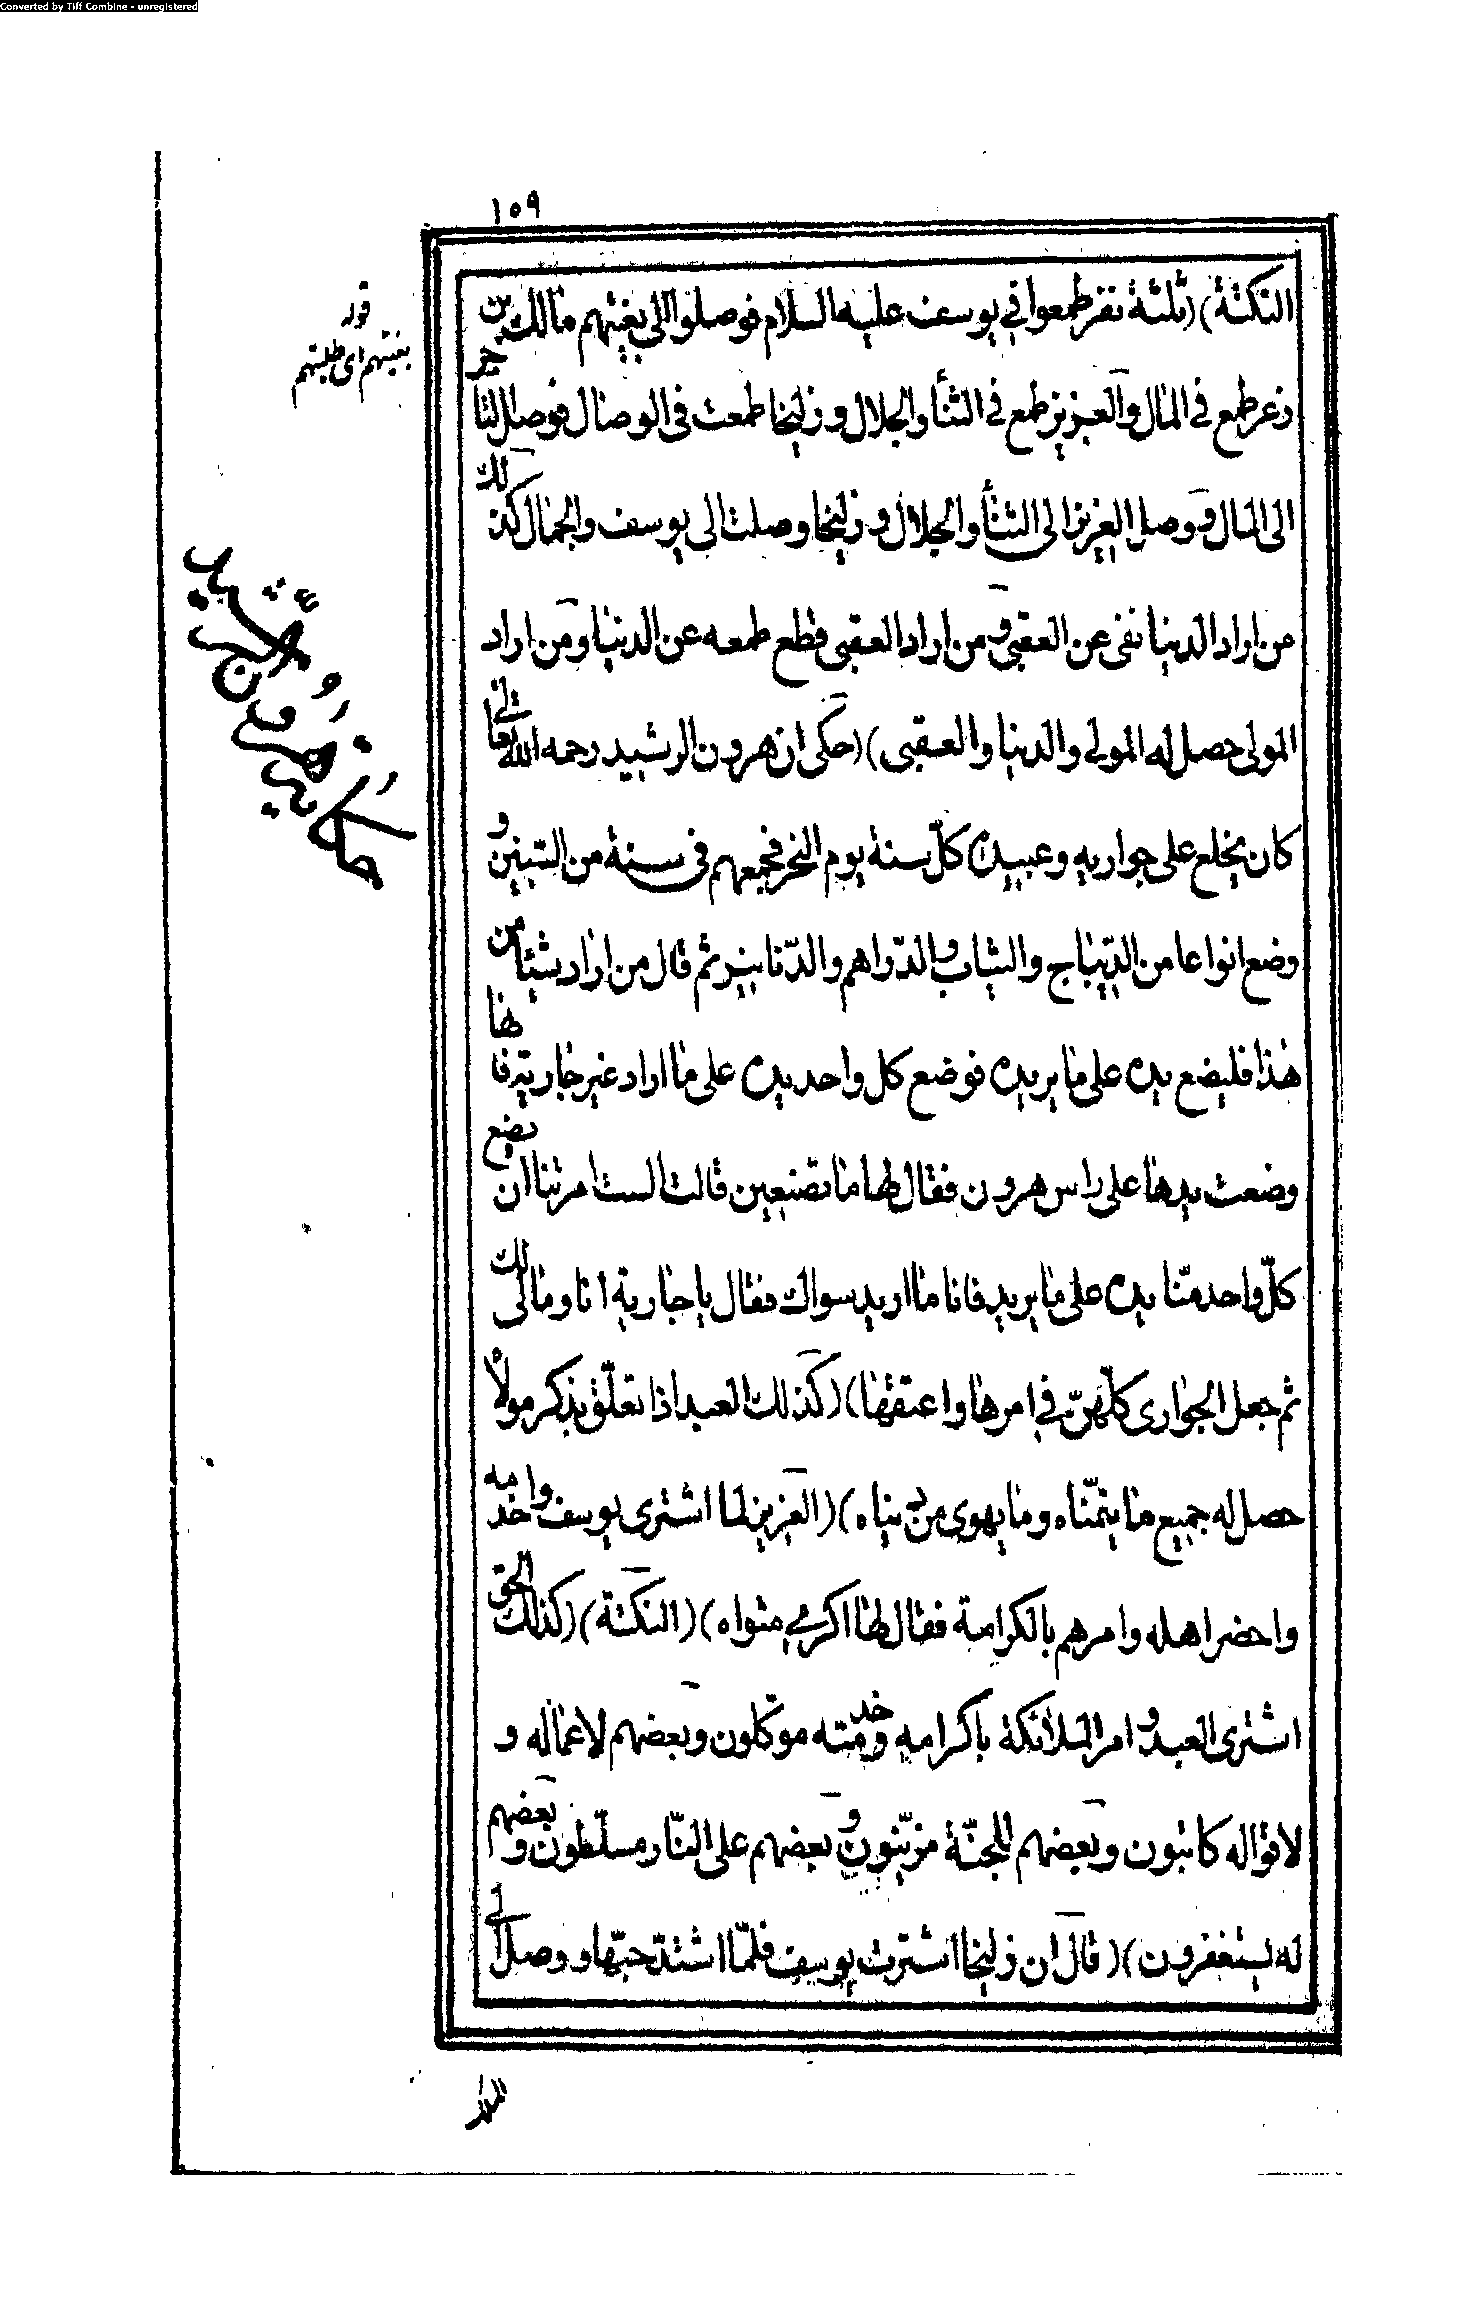 Converted by Tiff Combine - unregistered
١٥٩
النكتة) (ثلثة نفر طمعوا في يوسف عليه السلام فوصلوا الى بغيتهم مالك بن
ذعر طمع في المال والعزيز طمع في الثنأ والجلال و زليخا طمعت في الوصال فوصل التاجر
الى المال و وصل العزيز الى الثنأ والجلال و زليخا وصلت الى يوسف والجمال كذلك
من اراد الدنيا نفى عن العقبى و من اراد العقبى قطع طمعه عن الدنيا و من اراد
المولى حصل له المولى والدنيا والعقبى) (حكى ان هرون الرشيد رحمه الله تعالى
كان يخلع على جواريه و عبيده كلّ سنة يوم النحر فجمعهم في سنة من السنين و
وضع انواعا من الديباج والثياب والدّراهم والدّنانير ثم قال من اراد شيئا من
هذا فليضع يده على ما يريده فوضع كل واحد يده على ما اراد غير جارية فانها
وضعت يدها على راس هرون فقال لها ما تصنعين قالت الست امرتنا ان يضع
كلّ واحد منّا يده على ما يريد فانا ما اريد سواك فقال يا جارية انا و مالى لك
ثم جعل الجوارى كلّهنّ في امرها واعتقها) (كذلك العبد اذا تعلّق بذكر مولاه
حصل له جميع ما يتمنّاه و ما يهوى من دنياه) (العزيز لما اشترى يوسف واخدمه
واحضر اهله وامرهم بالكرامة فقال لها اكرمي مثواه) (النكتة) (كذلك الحق
اشترى العبد و امر الملائكة باكرامه و خدمته موكلون و بعضهم لاعماله و
لاقواله كاتبون و بعضهم للجنّة مزيّنون و بعضهم على النّار مسلّطون و بعضهم
له يستغفرون) (قال ان زليخا اشترت يوسف فلمّا اشتدّ حبّها و وصل الى
قوله
بغيتهم اى طلبتهم
حكاية هرون الرشيد